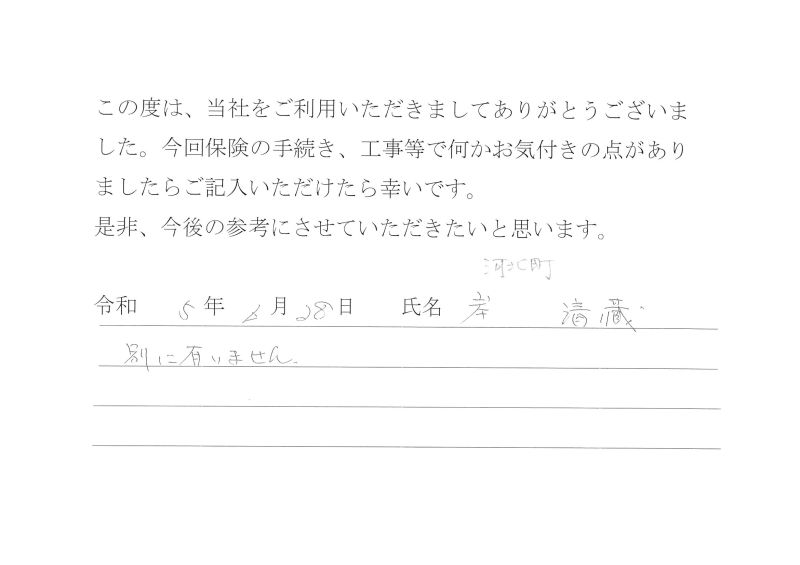 この度は、当社をご利用いただきましてありがとうございま
した。今回保険の手続き、工事等で何かお気付きの点があり
ましたらご記入いただけたら幸いです。
是非、今後の参考にさせていただきたいと思います。
河北町
令和 5年 6月28日 氏名 岸 清蔵
別に有いません.